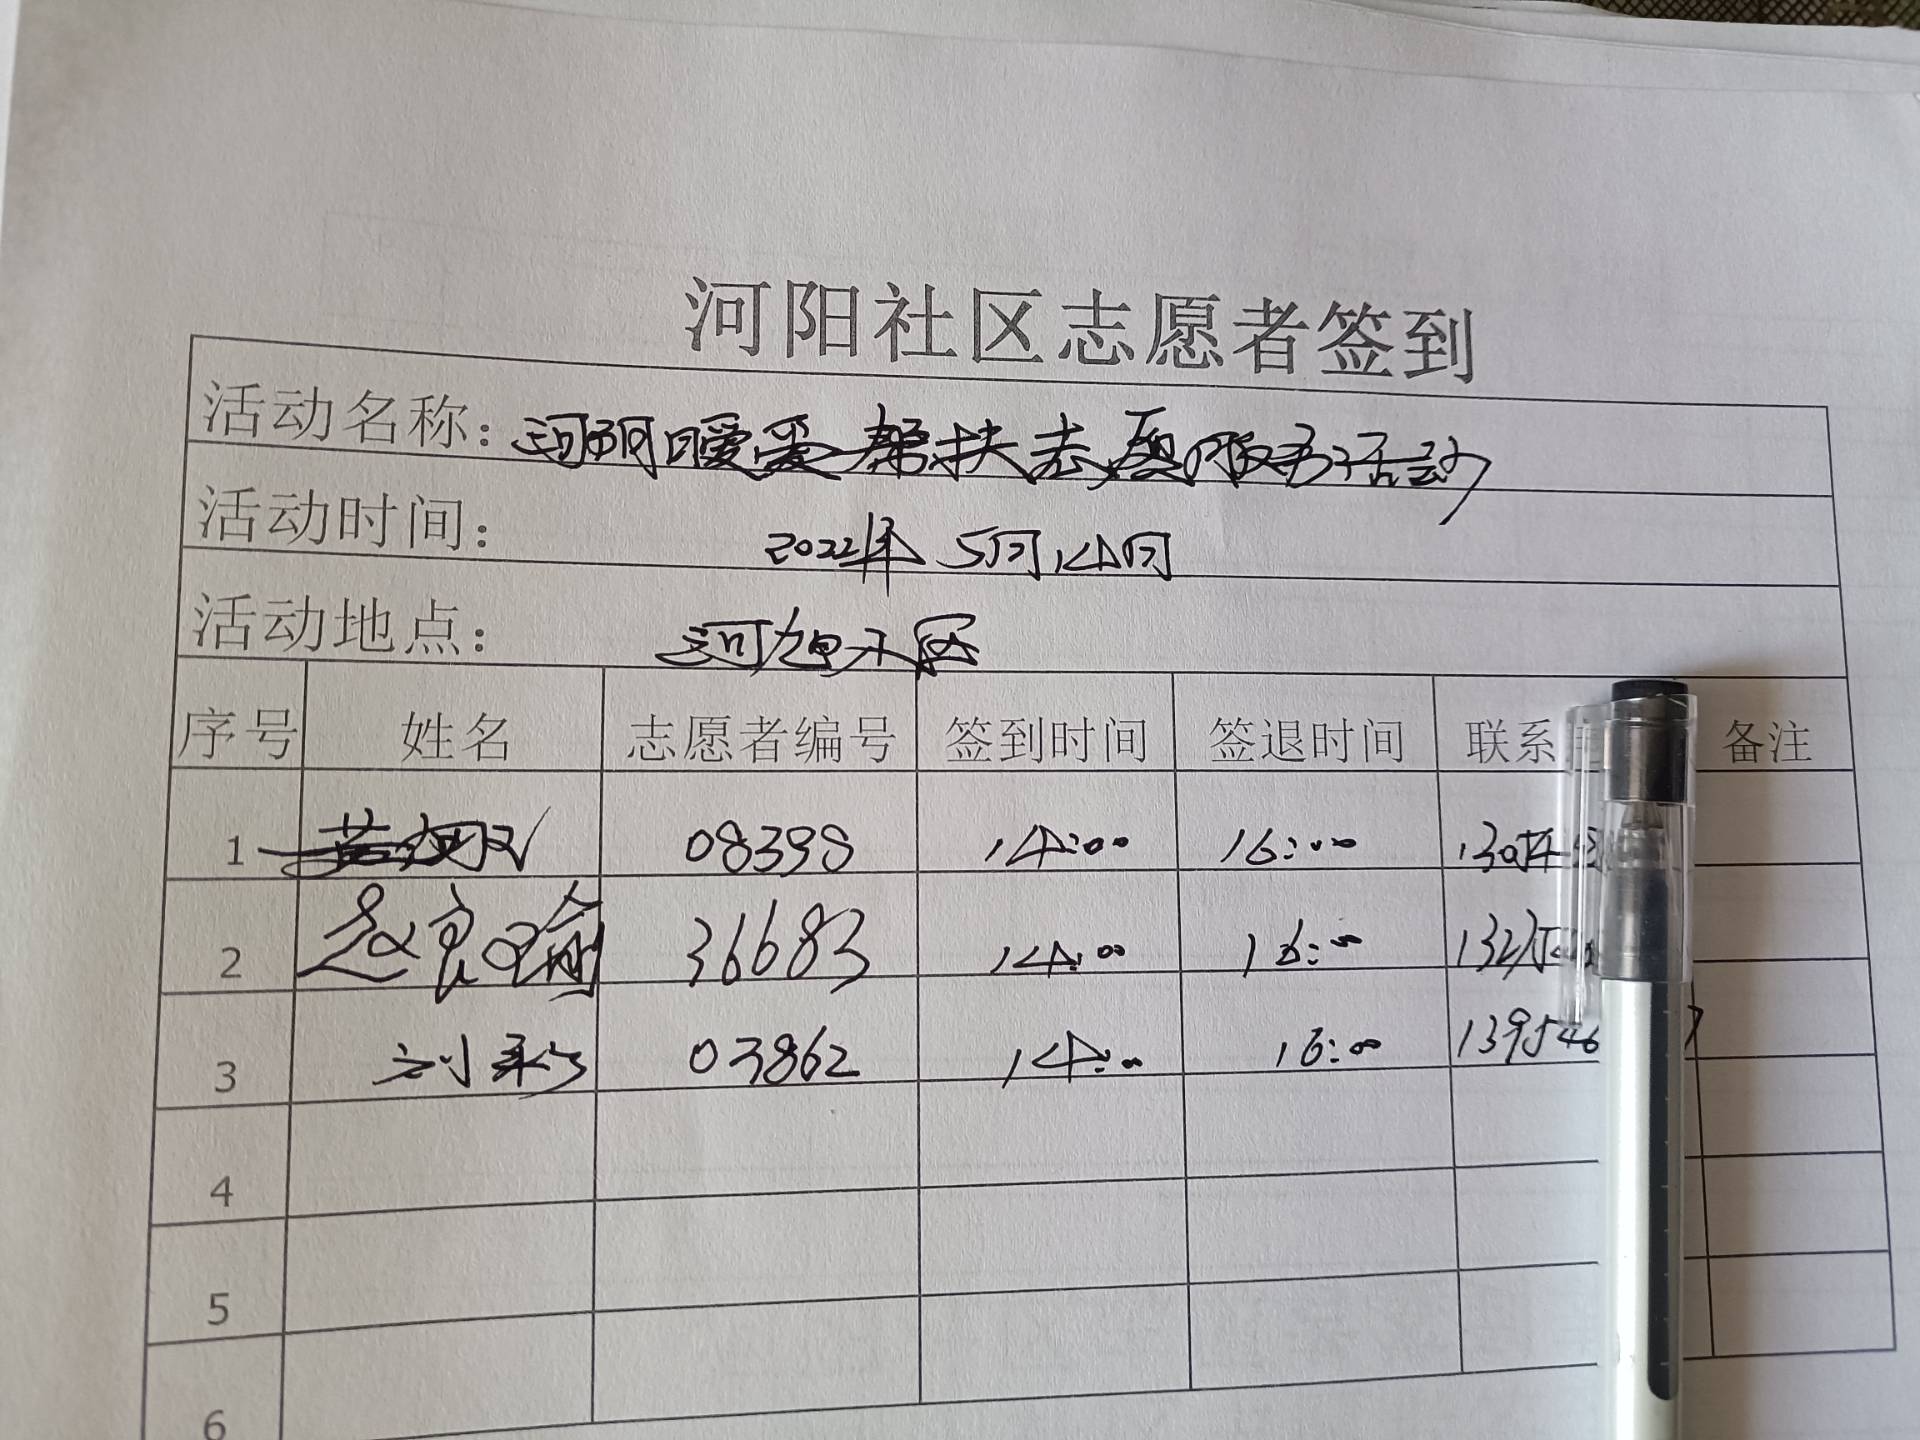 河阳社区志愿者签到
活动名称：河阳暖爱帮扶志愿服务活动
活动时间：2022年5月14日
活动地点：河旭小区
序号 姓名 志愿者编号 签到时间 签退时间 联系 备注
1 08398 14:00 16:00
2 赵良瑜 36683 14:00 16:00
3 刘 03862 14:00 16:00 139546
4
5
6